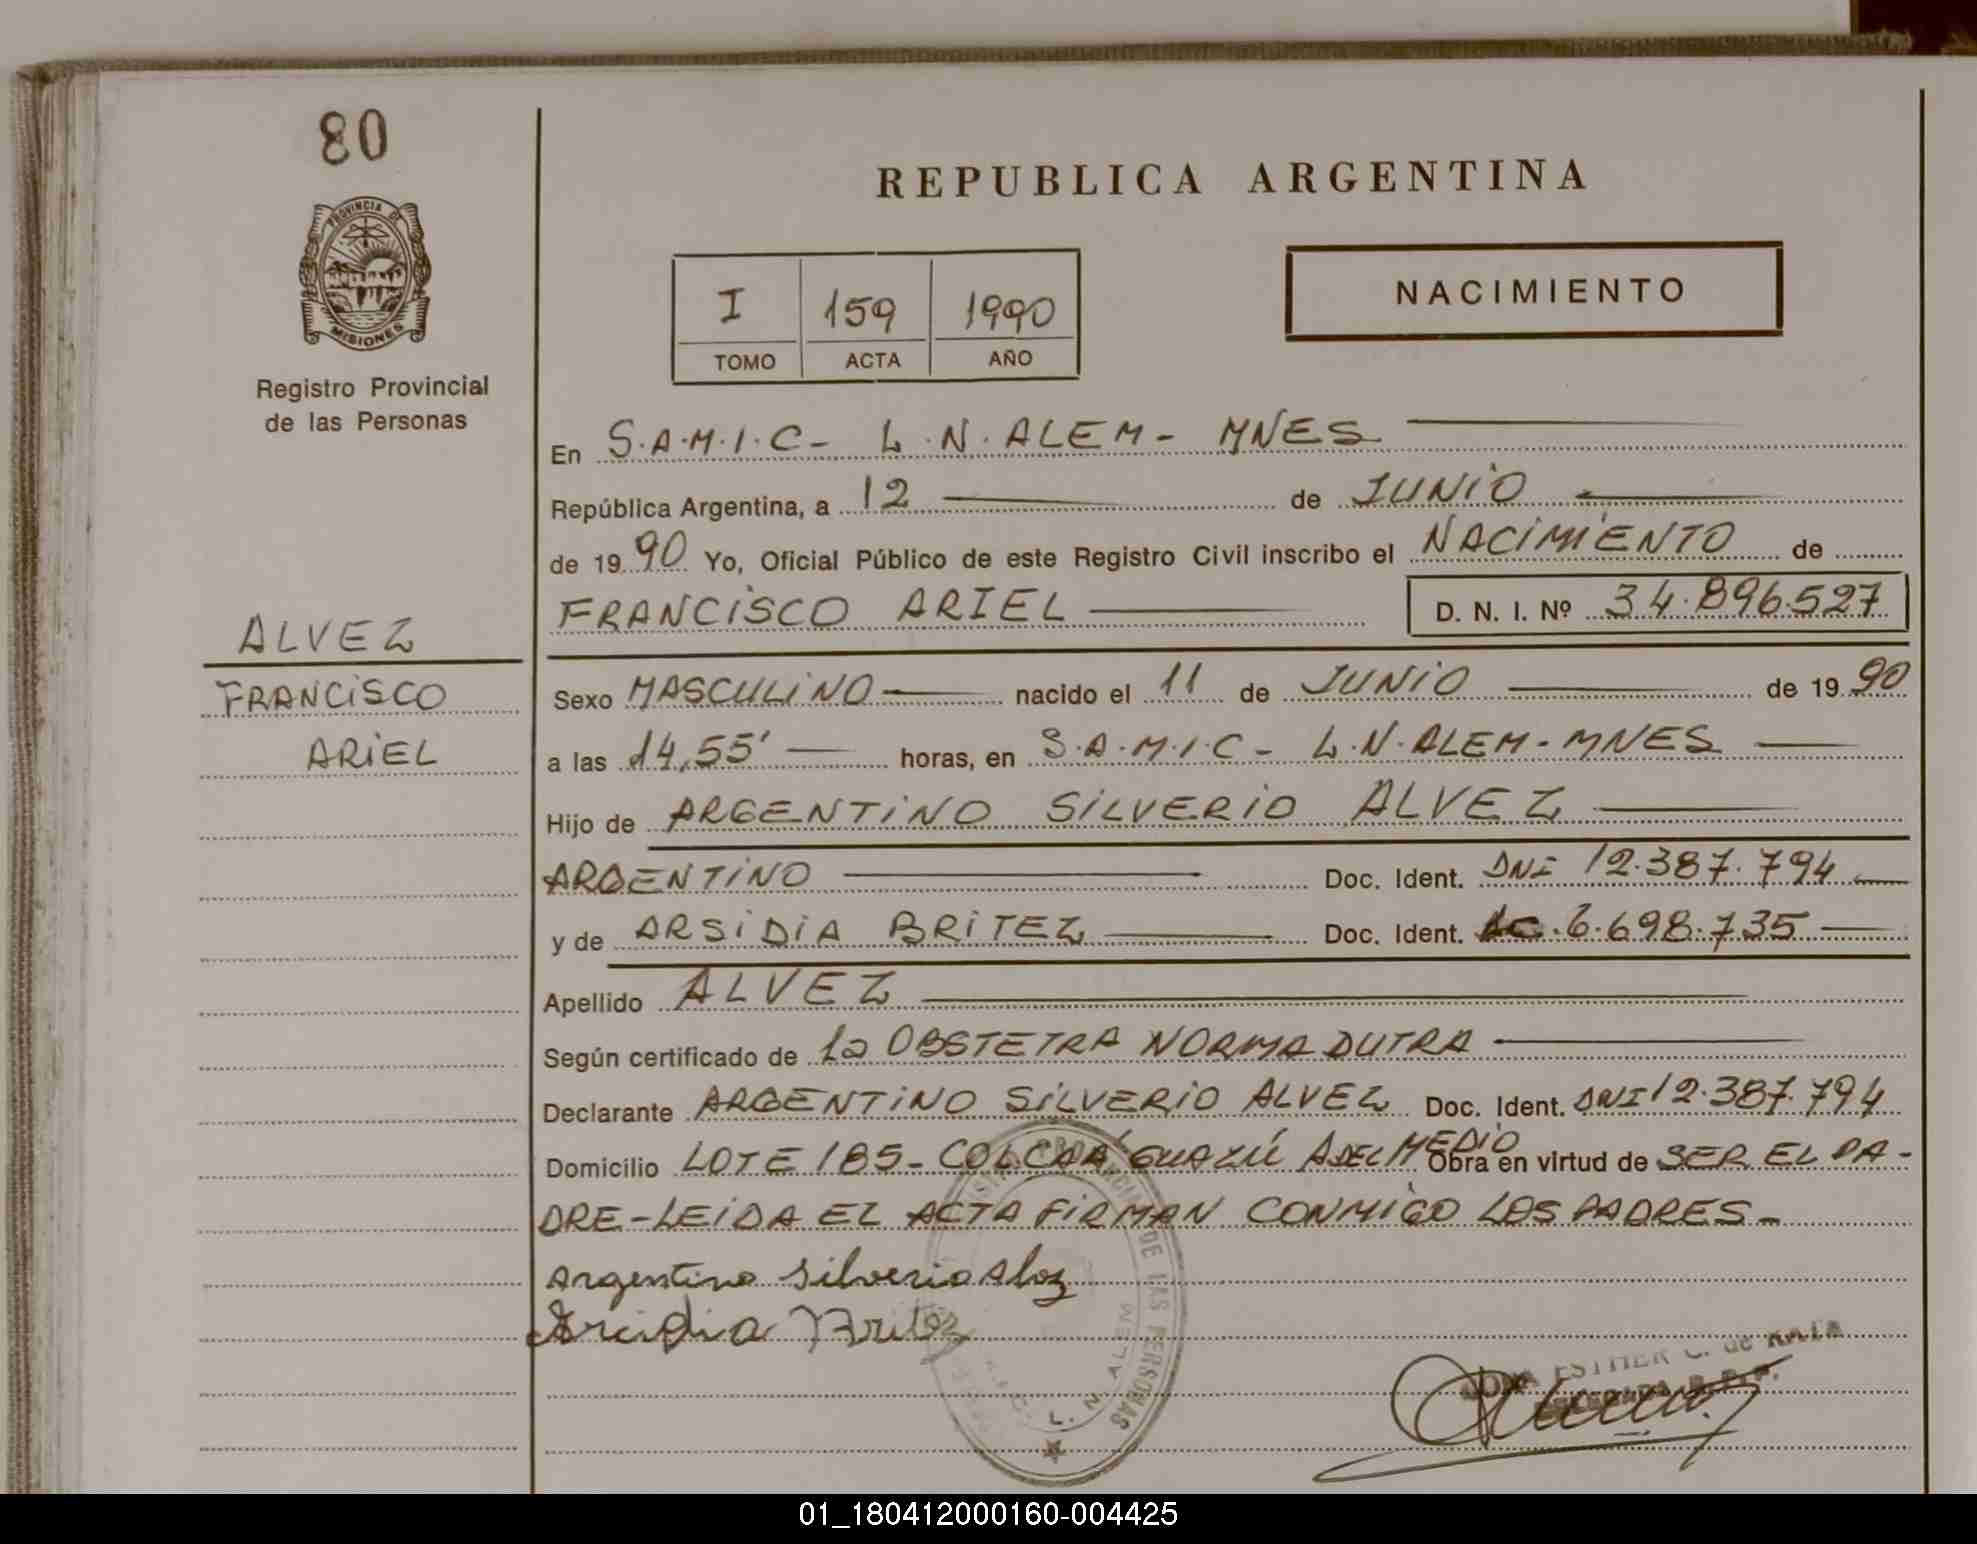 80
REPUBLICA ARGENTINA
PROVINCIA DE
MISIONES
Registro Provincial
de las Personas
I 159 1990
TOMO ACTA AÑO
NACIMIENTO
En S.A.M.I.C- L.N.ALEM- MNES
República Argentina, a 12 de JUNIO
de 19 90 Yo, Oficial Público de este Registro Civil inscribo el NACIMIENTO de
FRANCISCO ARIEL D. N. I. Nº 34.896.527
ALVEZ
FRANCISCO
ARIEL
Sexo MASCULINO nacido el 11 de JUNIO de 19 90
a las 14,55' horas, en S.A.M.I.C- L.N.ALEM-MNES
Hijo de ARGENTINO SILVERIO ALVEZ
ARGENTINO Doc. Ident. DNI 12.387.794
y de ARSIDIA BRITEZ Doc. Ident. 6.698.735
Apellido ALVEZ
Según certificado de La OBSTETRA NORMA DUTRA
Declarante ARGENTINO SILVERIO ALVEZ Doc. Ident. DNI 12.387.794
Domicilio LOTE 185- COL CAA GUAZÚ A DEL MEDIO Obra en virtud de SER EL PA-
DRE-LEIDA EL ACTA FIRMAN CONMIGO LOS PADRES-
Argentino Silverio
DE LAS PERSONAS
L. N. ALEM
ESTHER C. de
01_180412000160-004425